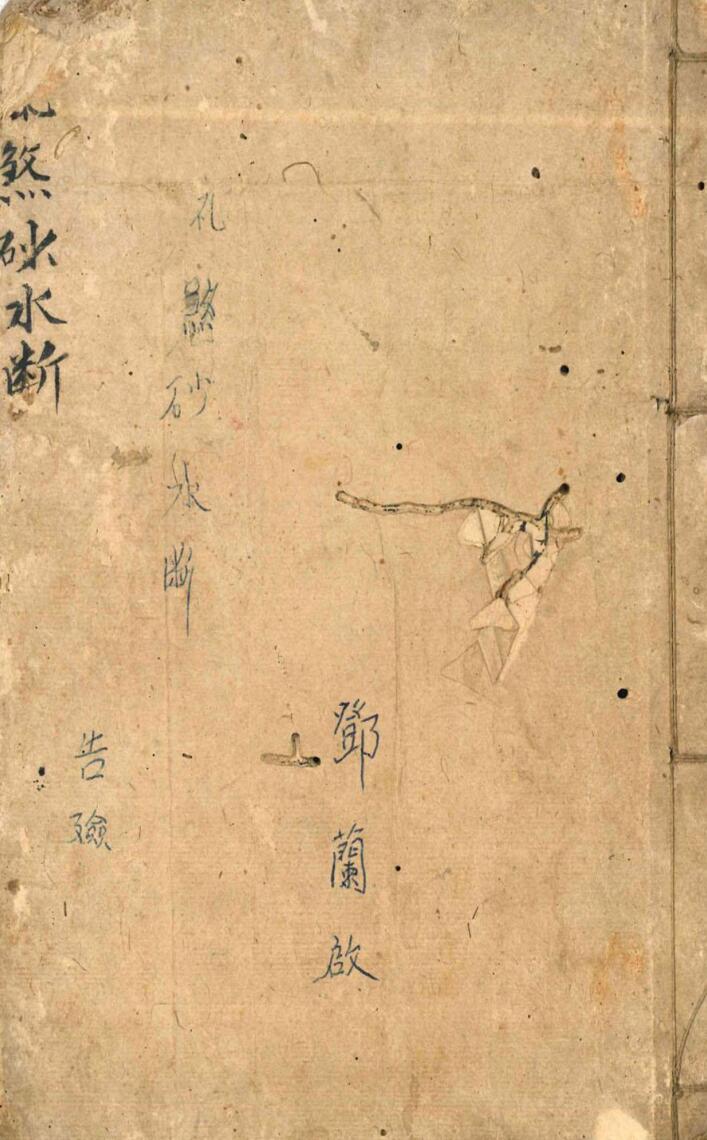 鄧蘭啟
孔煞砂水断
告殮
煞砂水断